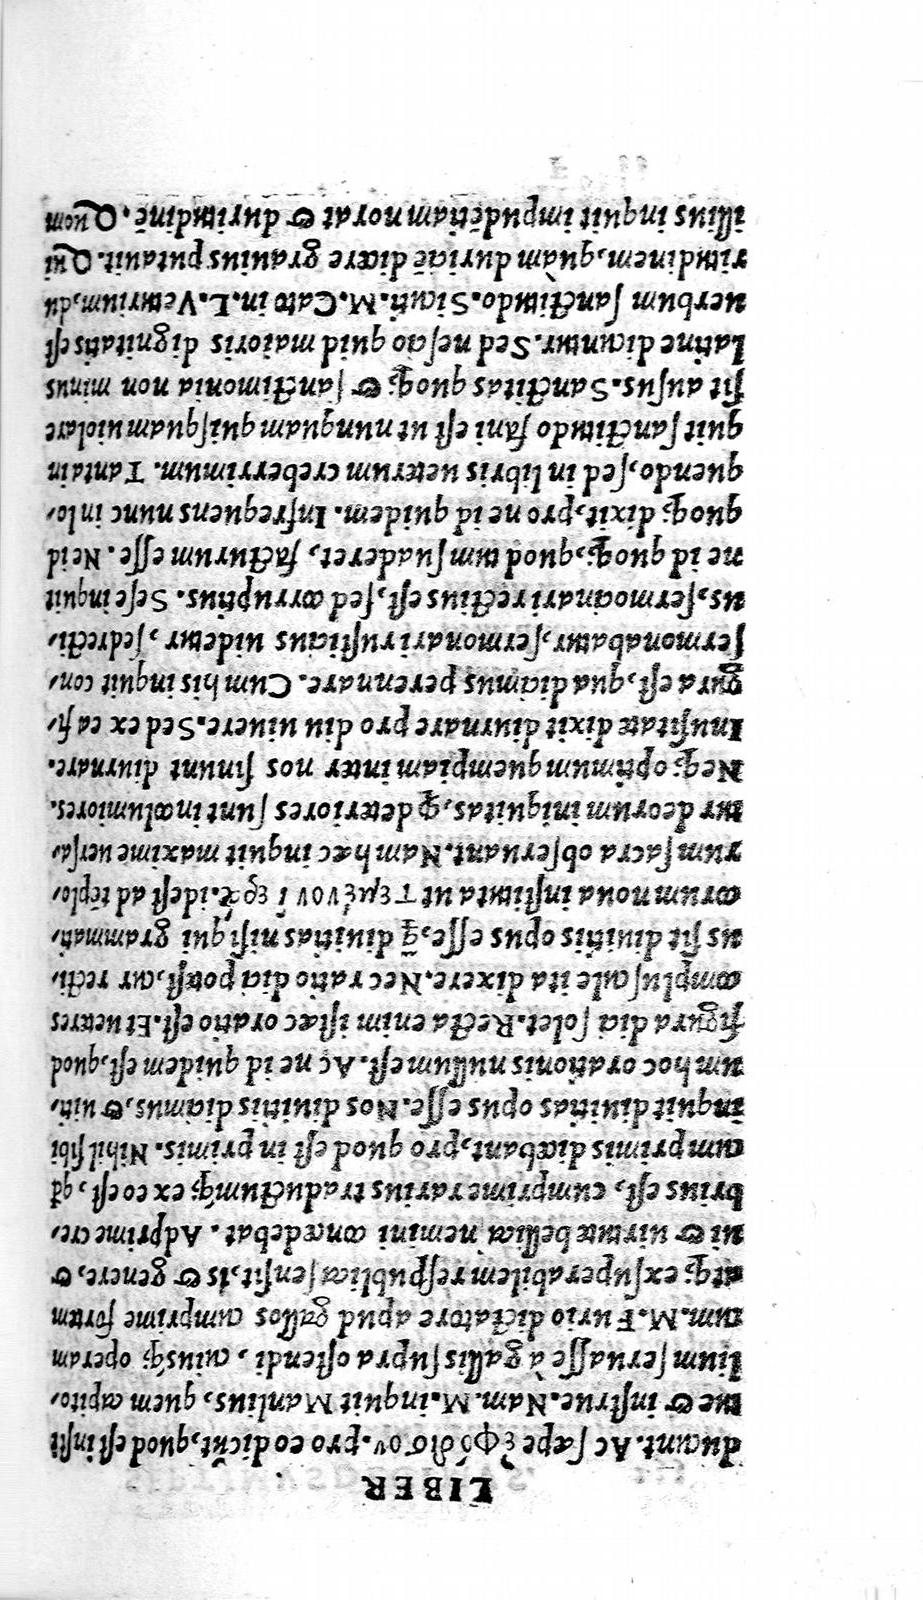 LIBER
ducunt. Ac sæpe ἐφόδιον. pro eo dicūt, quod est insti
tue & instrue. Nam. M. inquit Manlius, quem capito-
lium seruasse à gallis supra ostendi, cuiusq; operam
cum. M. Furio dictatore apud gallos cumprime fortem
atq; exsuperabilem respublica sensit, is & genere, &,
ui & uirtute bellica nemini concedebat. Adprime cre-
brius est, cumprime rarius traductumq; ex eo est, qđ
cum primis dicebant, pro quod est in primis. Nihil sibi
inquit diuitias opus esse. Nos diuitiis dicimus, & uiti-
um hoc orationis nullum est. Ac ne id quidem est, quod
figura dici solet. Recta enim istæc oratio est. Et ueteres
compluscule ita dixere. Nec ratio dici potest, cur recti-
us sit diuitiis opus esse, q̄ diuitias nisi qui grammati-
corum noua instituta ut Τεμένον ἱερά. i. idest ad tēplo-
rum sacra obseruant. Nam hæc inquit maxime uersa-
tur deorum iniquitas, q̄ deteriores sunt incolumiores.
Neq; optimum quempiam inter nos sinunt diurnare.
Inusitate dixit diurnare pro diu uiuere. Sed ex ea fi-
gura est, qua dicimus perennare. Cum his inquit con-
sermonabatur, sermonari rusticius uidetur, sed recti-
us, sermocinari rectius est, sed corruptius. Sese inquit
ne id quoq;, quod tum suaderet, facturum esse. Neid
quoq; dixit, pro ne id quidem. Infrequens nunc in lo-
quendo, sed in libris ueterum creberrimum. Tantain
quit sanctitudo fani est ut nunquam quisquam uiolare
sit ausus. Sanctitas quoq; & sanctimonia non minus
Latine dicuntur. Sed nescio quid maioris dignitatis est
uerbum sanctitudo. Sicuti. M. Cato in. L. Veturium, du
ritudinem, quàm duriciē dicere grauius putauit. Qui
illius inquit impudētiam norat & duritudinē. Quom